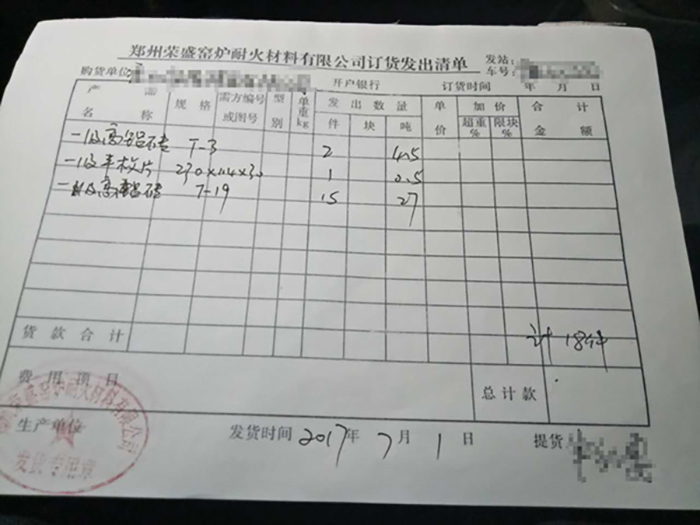 郑州荣盛窑炉耐火材料有限公司订货发出清单
发站:
车号:
购货单位 开户银行 订货时间 年 月 日
产品名称 规格 需方编号或图号 型别 单重kg 发出数量 单价 加价 合计
件 块 吨 超重% 限块% 金额
一级高铝砖 T-3 2
一级半枚片 230×114×30 1 0.5
高铝砖 T-19 15 27
货款合计 计 18件
费用项目 总计款
生产单位 发货时间 2017年 7月 1日 提货
耐火材料有限公司
发货专用章